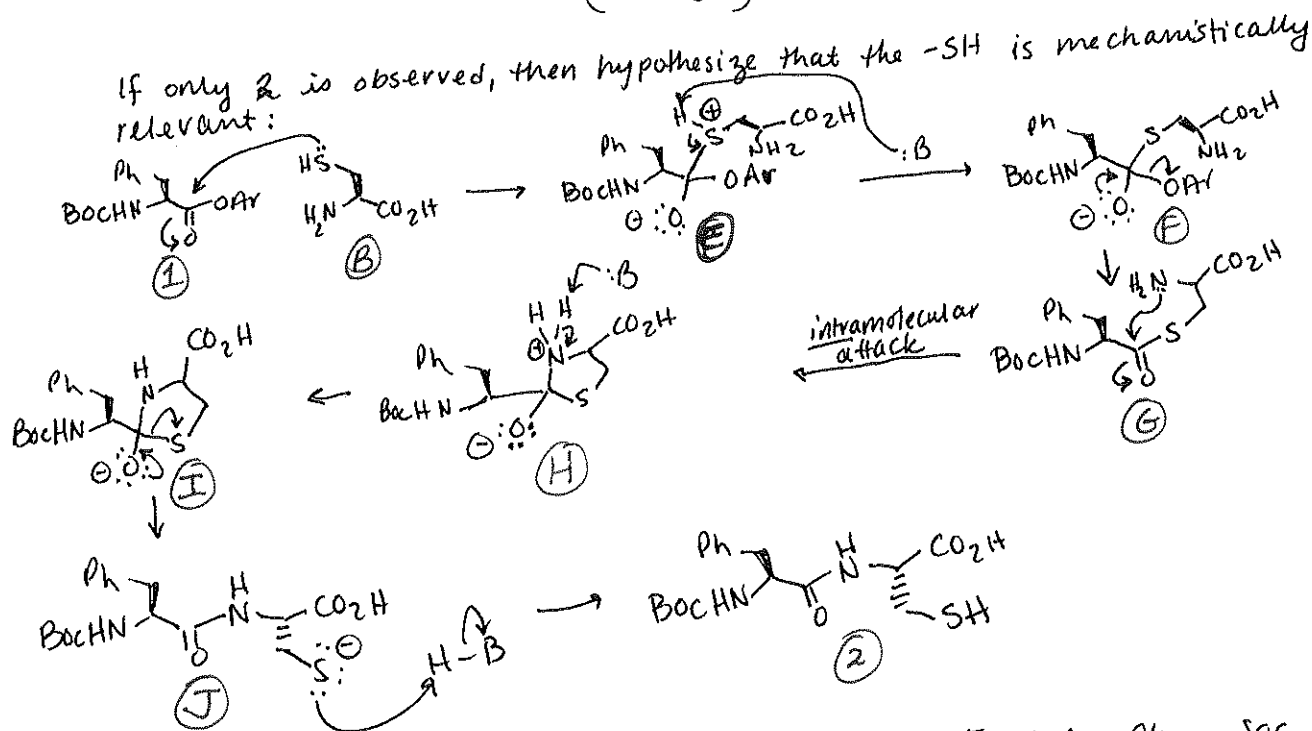 If only 2 is observed, then hypothesize that the -SH is mechanistically
relevant:
Ph
BocHN
OAr
O
1
HS
H2N
CO2H
B
H
S
CO2H
NH2
Ph
BocHN
OAr
O
E
:B
Ph
S
CO2H
NH2
BocHN
OAr
O
F
H2N
CO2H
Ph
BocHN
S
O
G
intramolecular
attack
H H
:B
N
CO2H
Ph
BocHN
S
O
H
CO2H
H
N
Ph
BocHN
S
O
I
Ph
H
N
CO2H
BocHN
O
S
J
H-B
Ph
H
N
CO2H
BocHN
O
SH
2